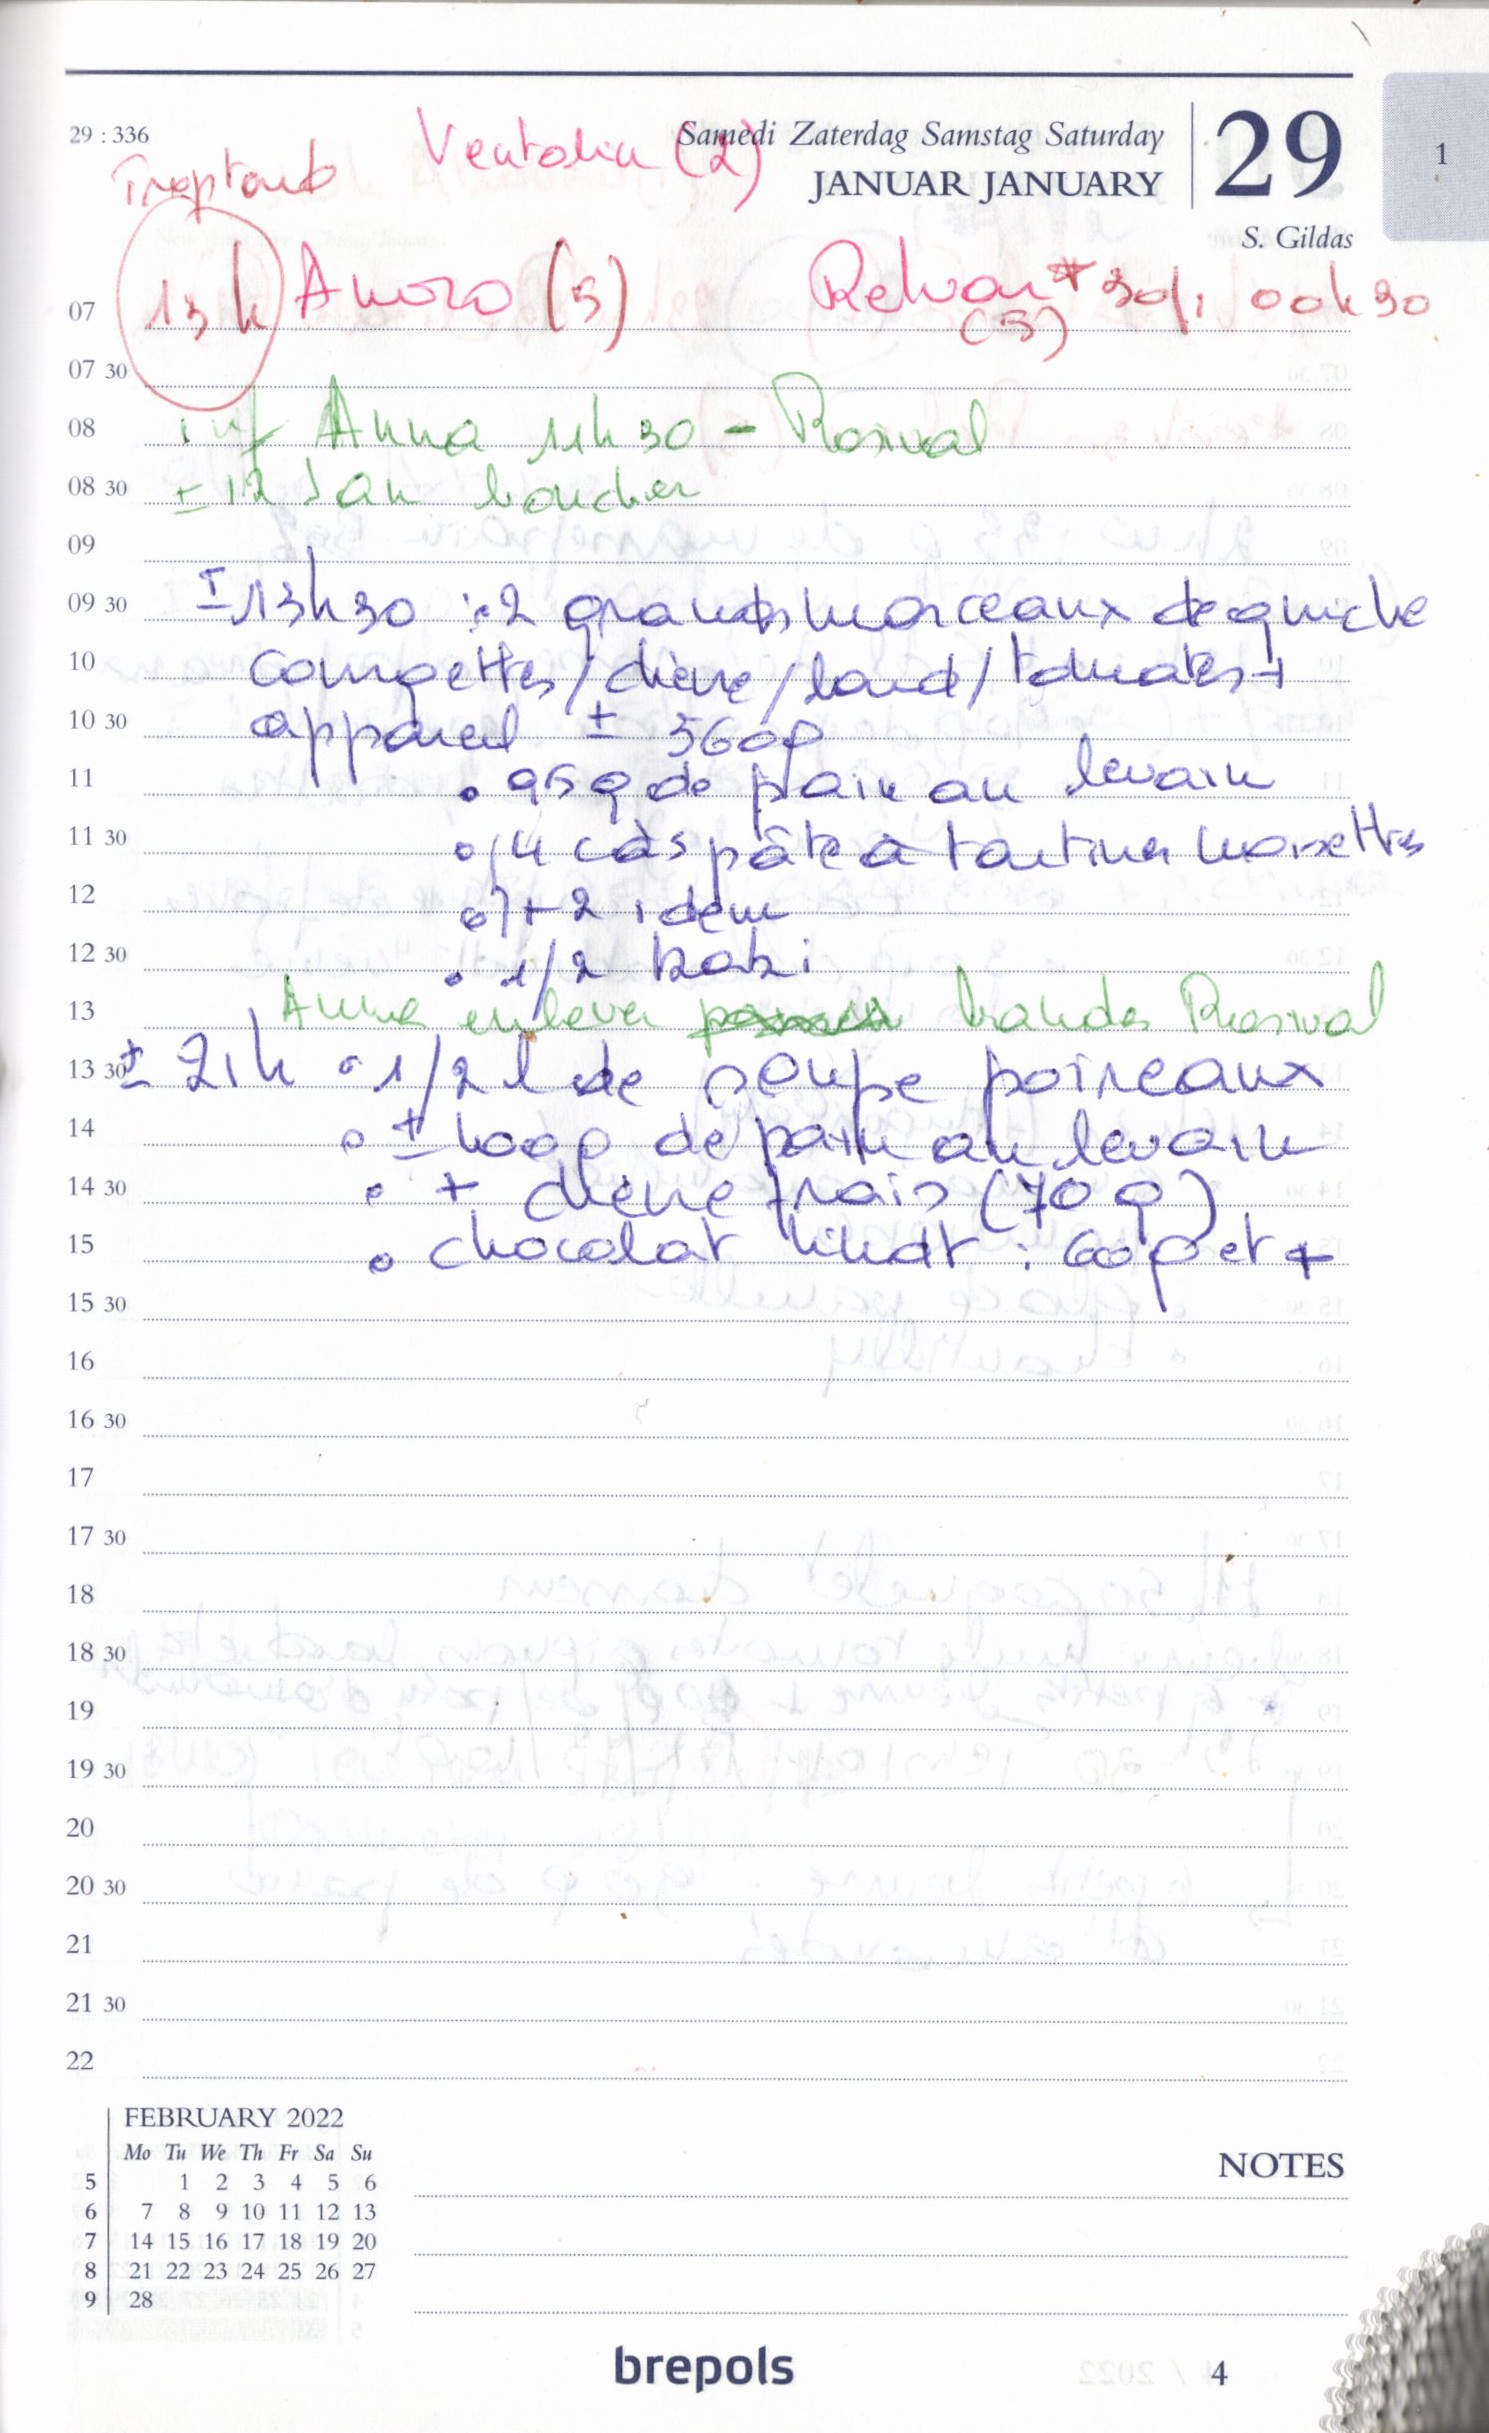 29 : 336
Samedi Zaterdag Samstag Saturday
JANUAR JANUARY
29
1
S. Gildas
Ventolin (2)
13h Anoro (5) Relvar * 30/1 00h30
(5)
07
07 30
08 inf Anna 11h30 - Rosival
08 30 ± 12 San boucher
09
09 30 ± 13h30 : 2 grands morceaux de quiche
10 courgettes/chèvre/lard/tomates +
10 30 appareil ± 560g
11 • 95g de pain au levain
11 30 • 4 càs pâte à tartiner noisettes
12 • + 2 idem
12 30 • 1/2 kaki
13 Anna enlever bandes Rosival
13 30 ± 21h • 1/2 l de soupe poireaux
14 • ± 100g de pain au levain
14 30 • + chèvre frais (70g)
15 • chocolat lindt : 60g et +
15 30
16
16 30
17
17 30
18
18 30
19
19 30
20
20 30
21
21 30
22
FEBRUARY 2022
Mo Tu We Th Fr Sa Su
5 1 2 3 4 5 6
6 7 8 9 10 11 12 13
7 14 15 16 17 18 19 20
8 21 22 23 24 25 26 27
9 28
NOTES
brepols
4